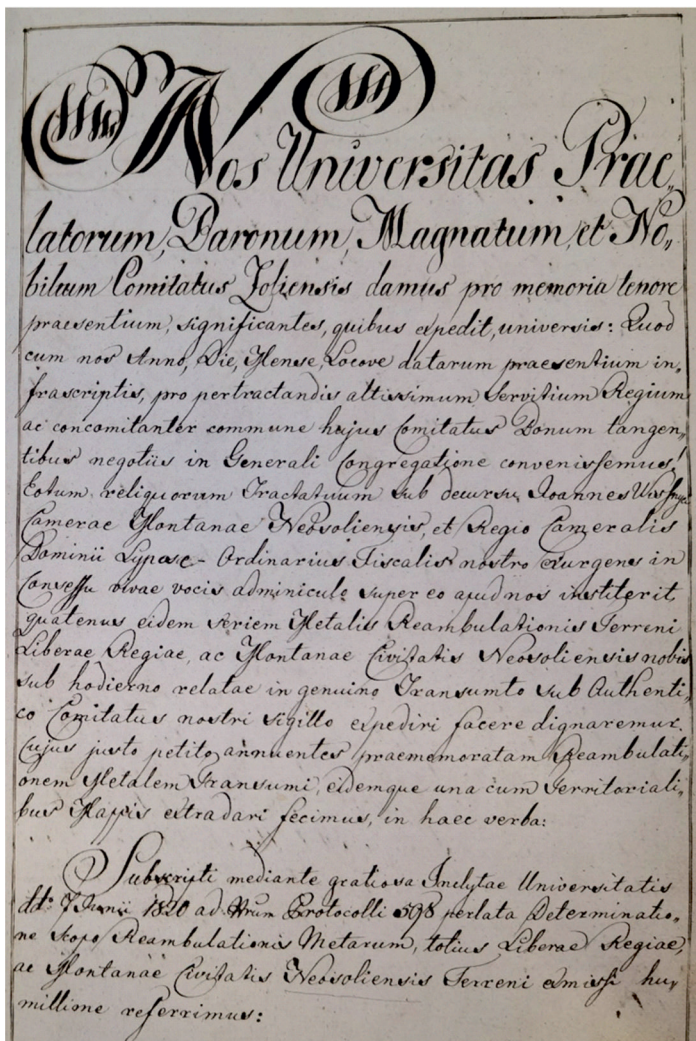 Nos Universitas Prae„
latorum, Baronum, Magnatum, et No„
bilium Comitatus Zoliensis damus pro memoria tenore
praesentium, significantes, quibus expedit, universis: Quod
cum nos Anno, Die, Mense, Locove datarum praesentium in„
frascriptis, pro pertractandis altissimum Servitium Regium
ac concomitanter commune hujus Comitatus Bonum tangen„
tibus negotiis in Generali Congregatione convenissemus,
Eotum reliquorum Tractatuum sub decursu Joannes
Camerae Montanae Neosoliensis, et Regio Cameralis
Dominii Lypcse- Ordinarius Fiscalis nostro exurgens in
Consessu vivae vocis adminiculo super eo apud nos institerit
quatenus eidem seriem Metalis Reambulationis Terreni
Liberae Regiae, ac Montanae Civitatis Neosoliensis nobis
sub hodierno relatae in genuino Transumto sub Authenti„
co Comitatus nostri sigillo expediri facere dignaremur.
Cujus justo petito annuentes praememoratam Reambulati„
onem Metalem Transumi, eidemque una cum Territoriali„
bus Mappis extradari fecimus, in haec verba:
Subscripti mediante gratiosa Inclytae Universitatis
ddto 7 Junii 1820 ad Nrum Protocolli 598 perlata Determinatio„
ne scopo Reambulationis Metarum, totius Liberae Regiae,
ac Montanae Civitatis Neosoliensis Terreni exmissi hu„
millime referrimus: